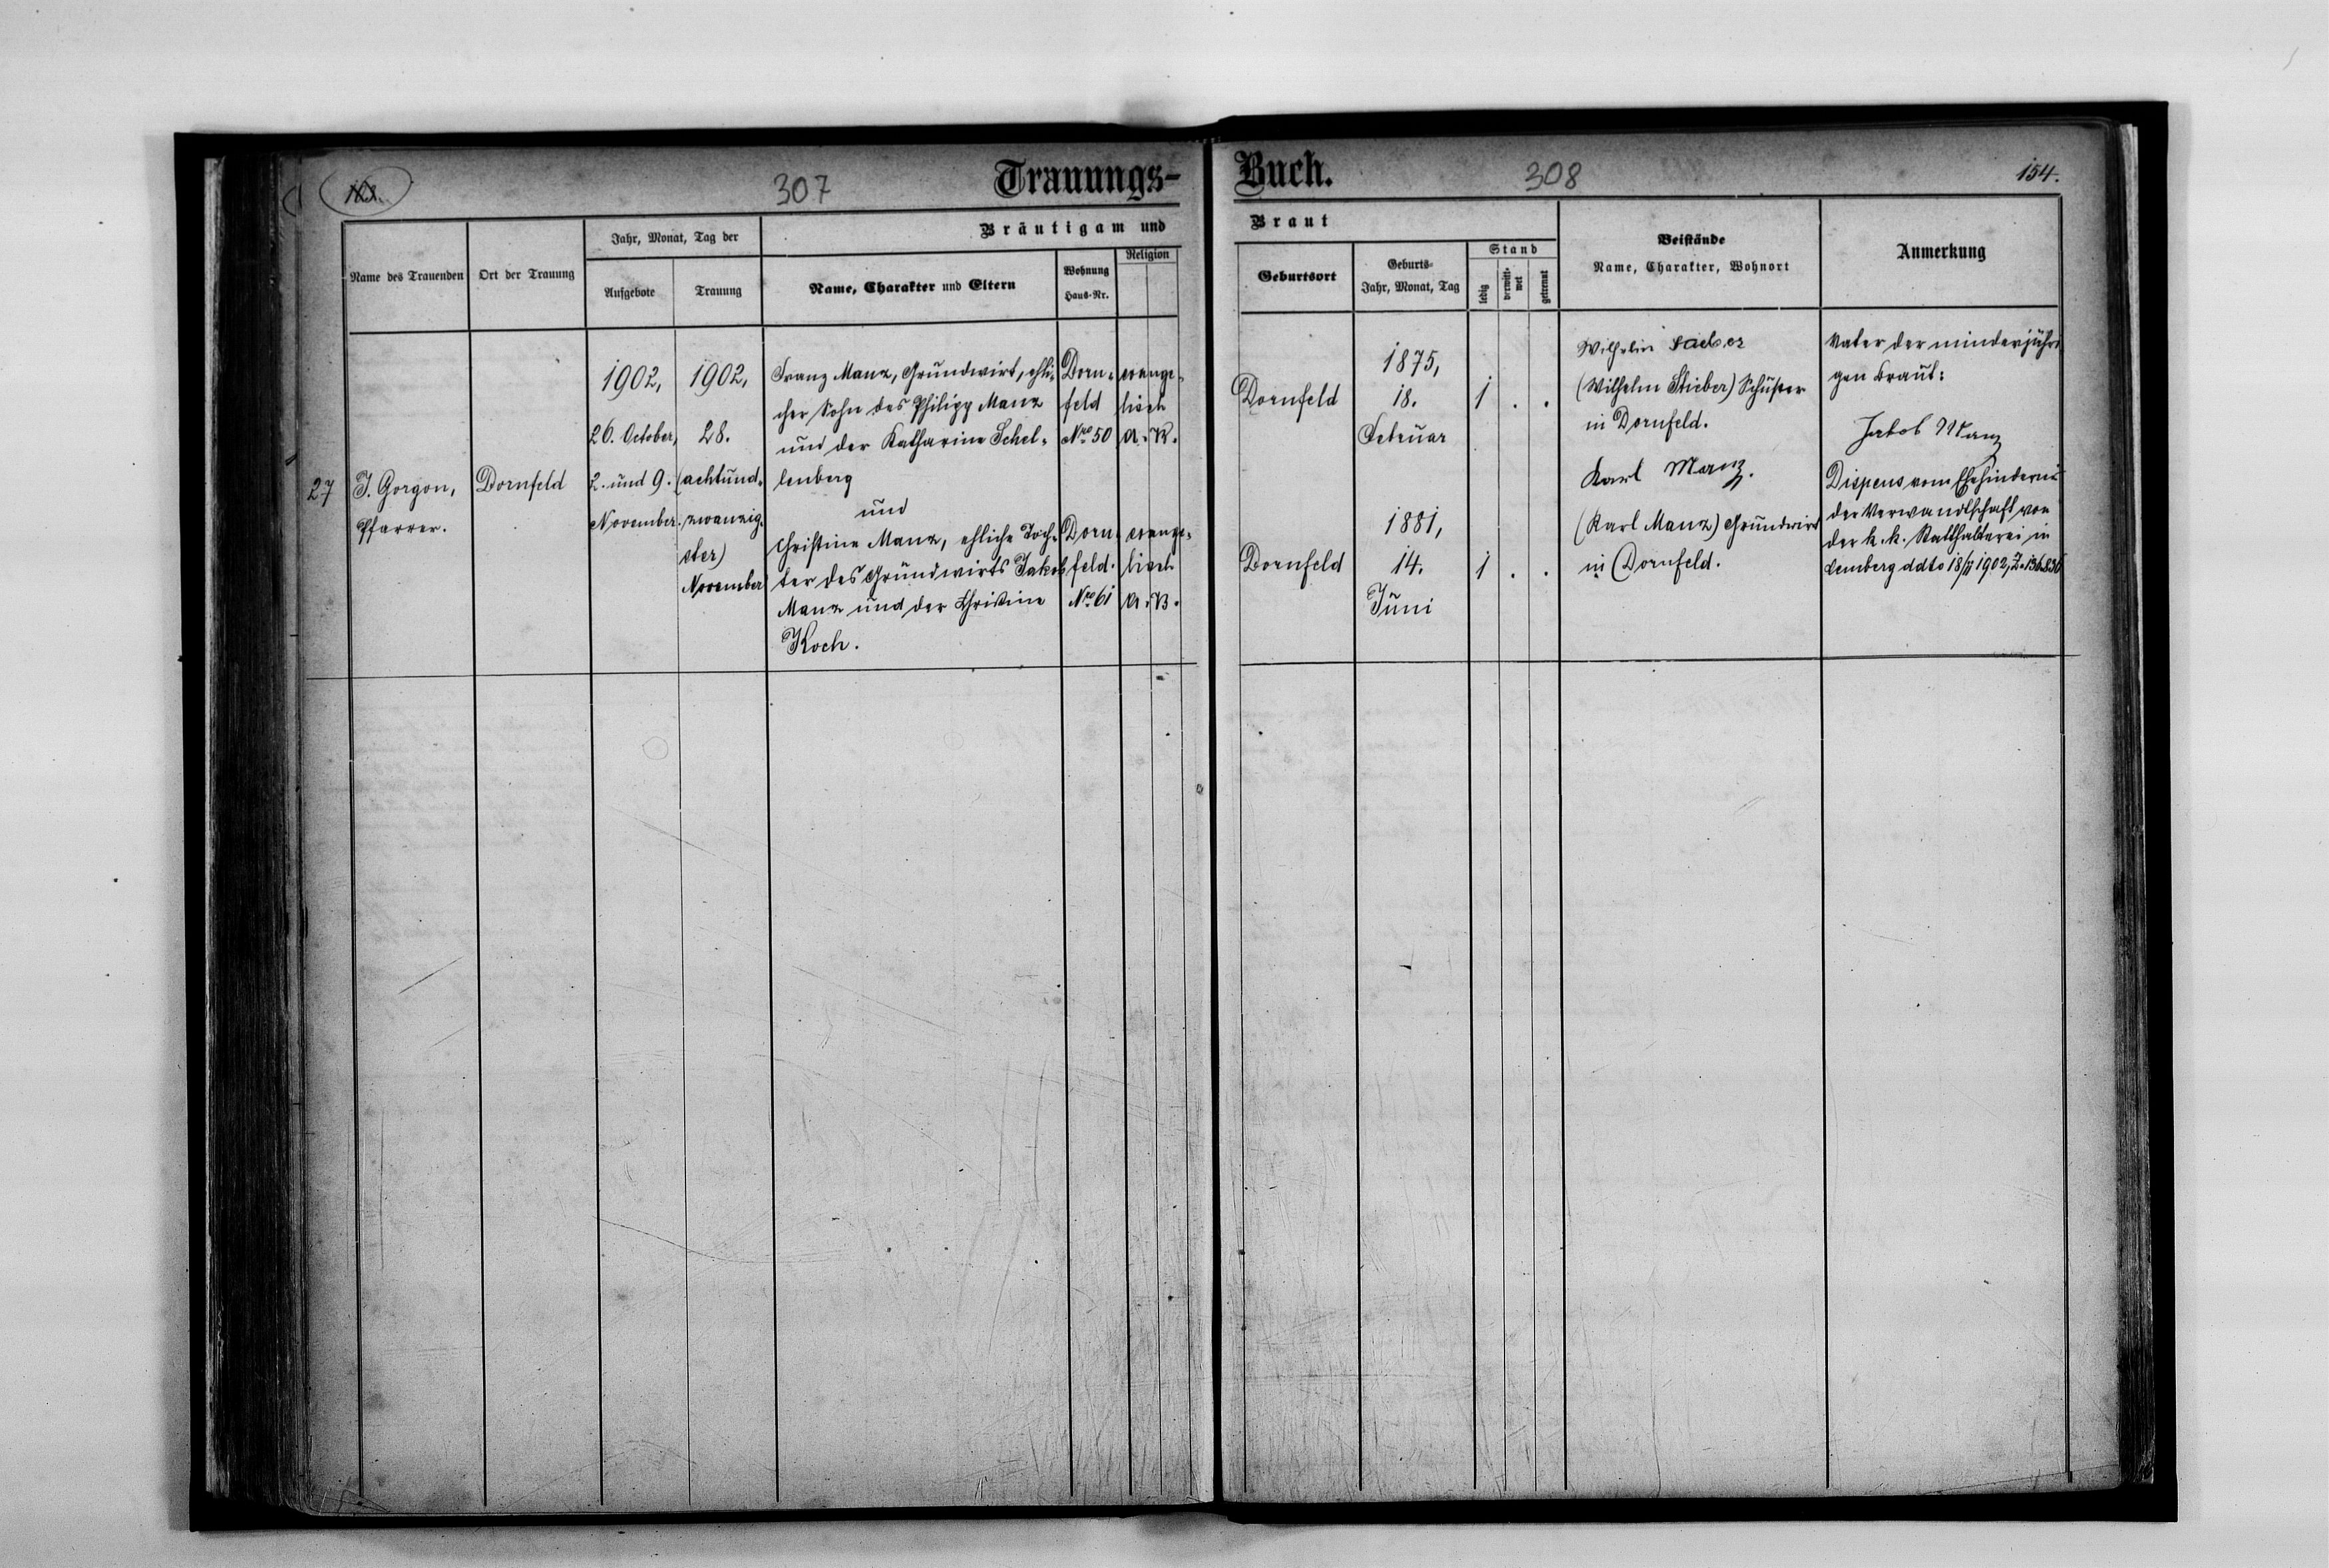 307
Trauungs-
Buch.
308
154.
Name des Trauenden
Ort der Trauung
Jahr, Monat, Tag der
Aufgebote
Trauung
Bräutigam und
Name, Charakter und Eltern
Wohnung
Haus-Nr.
Religion
Braut
Geburtsort
Geburts-
Jahr, Monat, Tag
Stand
ledig
verwitt-
wet
getrennt
Beistände
Name, Charakter, Wohnort
Anmerkung
27
J. Gorgon,
Pfarrer.
Dornfeld
1902,
26. October,
2. und 9.
November.
1902,
28.
(achtund-
zwanzig-
ster)
November
Franz Manz, Grundwirt, ehli-
cher Sohn des Philipp Manz
und der Katharina Schel-
lenberg
und
Christine Manz, ehliche Toch-
ter des Grundwirts Jakob
Manz und der Christine
Koch.
Dorn-
feld
Nro 50
Dorn-
feld.
Nro 61
evange-
lisch
A. B.
evange-
lisch
A. B.
Dornfeld
1875,
18.
Februar
1 . .
Dornfeld
1881,
14.
Juni
1 . .
Wilhelm
(Wilhelm Stieber) Schuster
in Dornfeld.
Karl Manz.
(Karl Manz) Grundwirt
in Dornfeld.
Vater der minderjähri
gen Braut:
Jakob Manz
Dispens vom Ehehinderniß
der Verwandtschaft von
der k. k. Statthalterei in
Lemberg ddto 18/ 1902, Z. 136.836